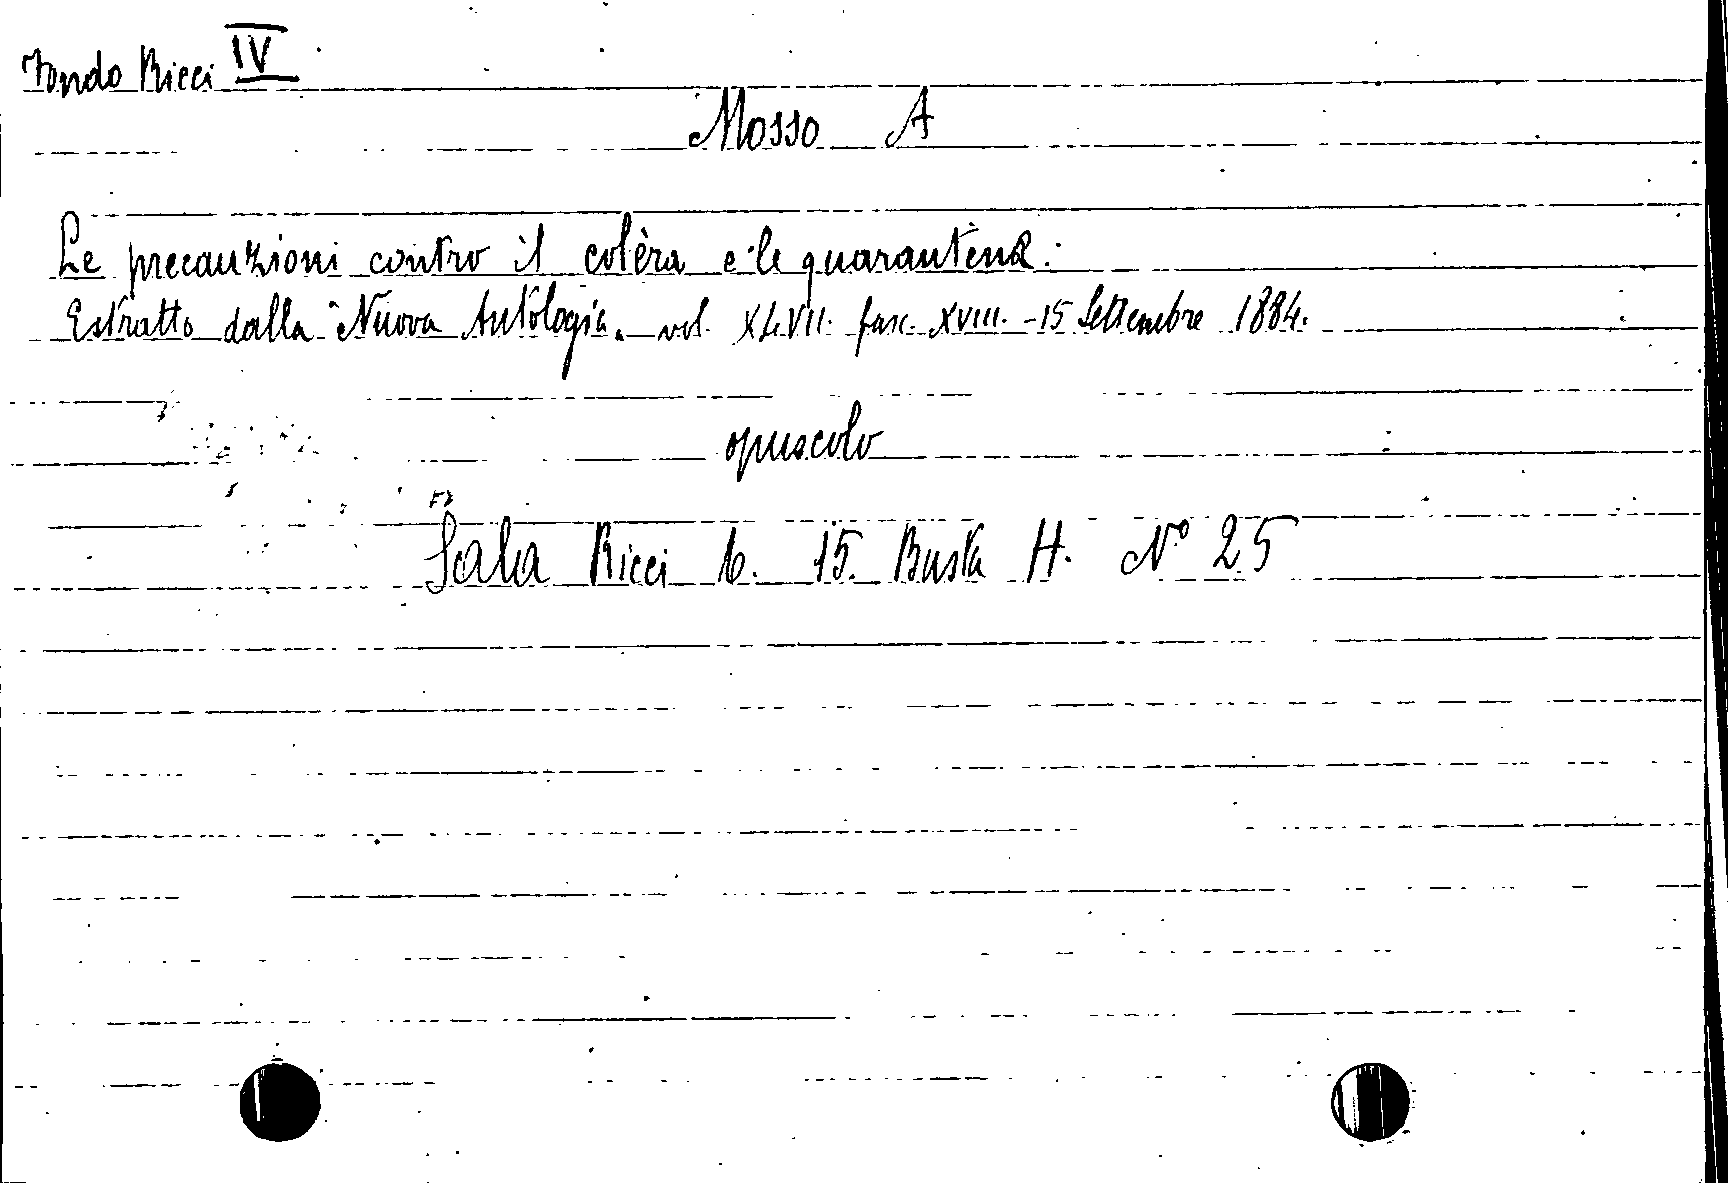 Fondo Ricci IV
Mosso A
Le precauzioni contro il colèra e le quarantène.
Estratto dalla Nuova Antologia. vol. XLVII. fasc. XVIII. - 15 Settembre 1884.
opuscolo
Sala Ricci 6. 15. Busta H. N° 25